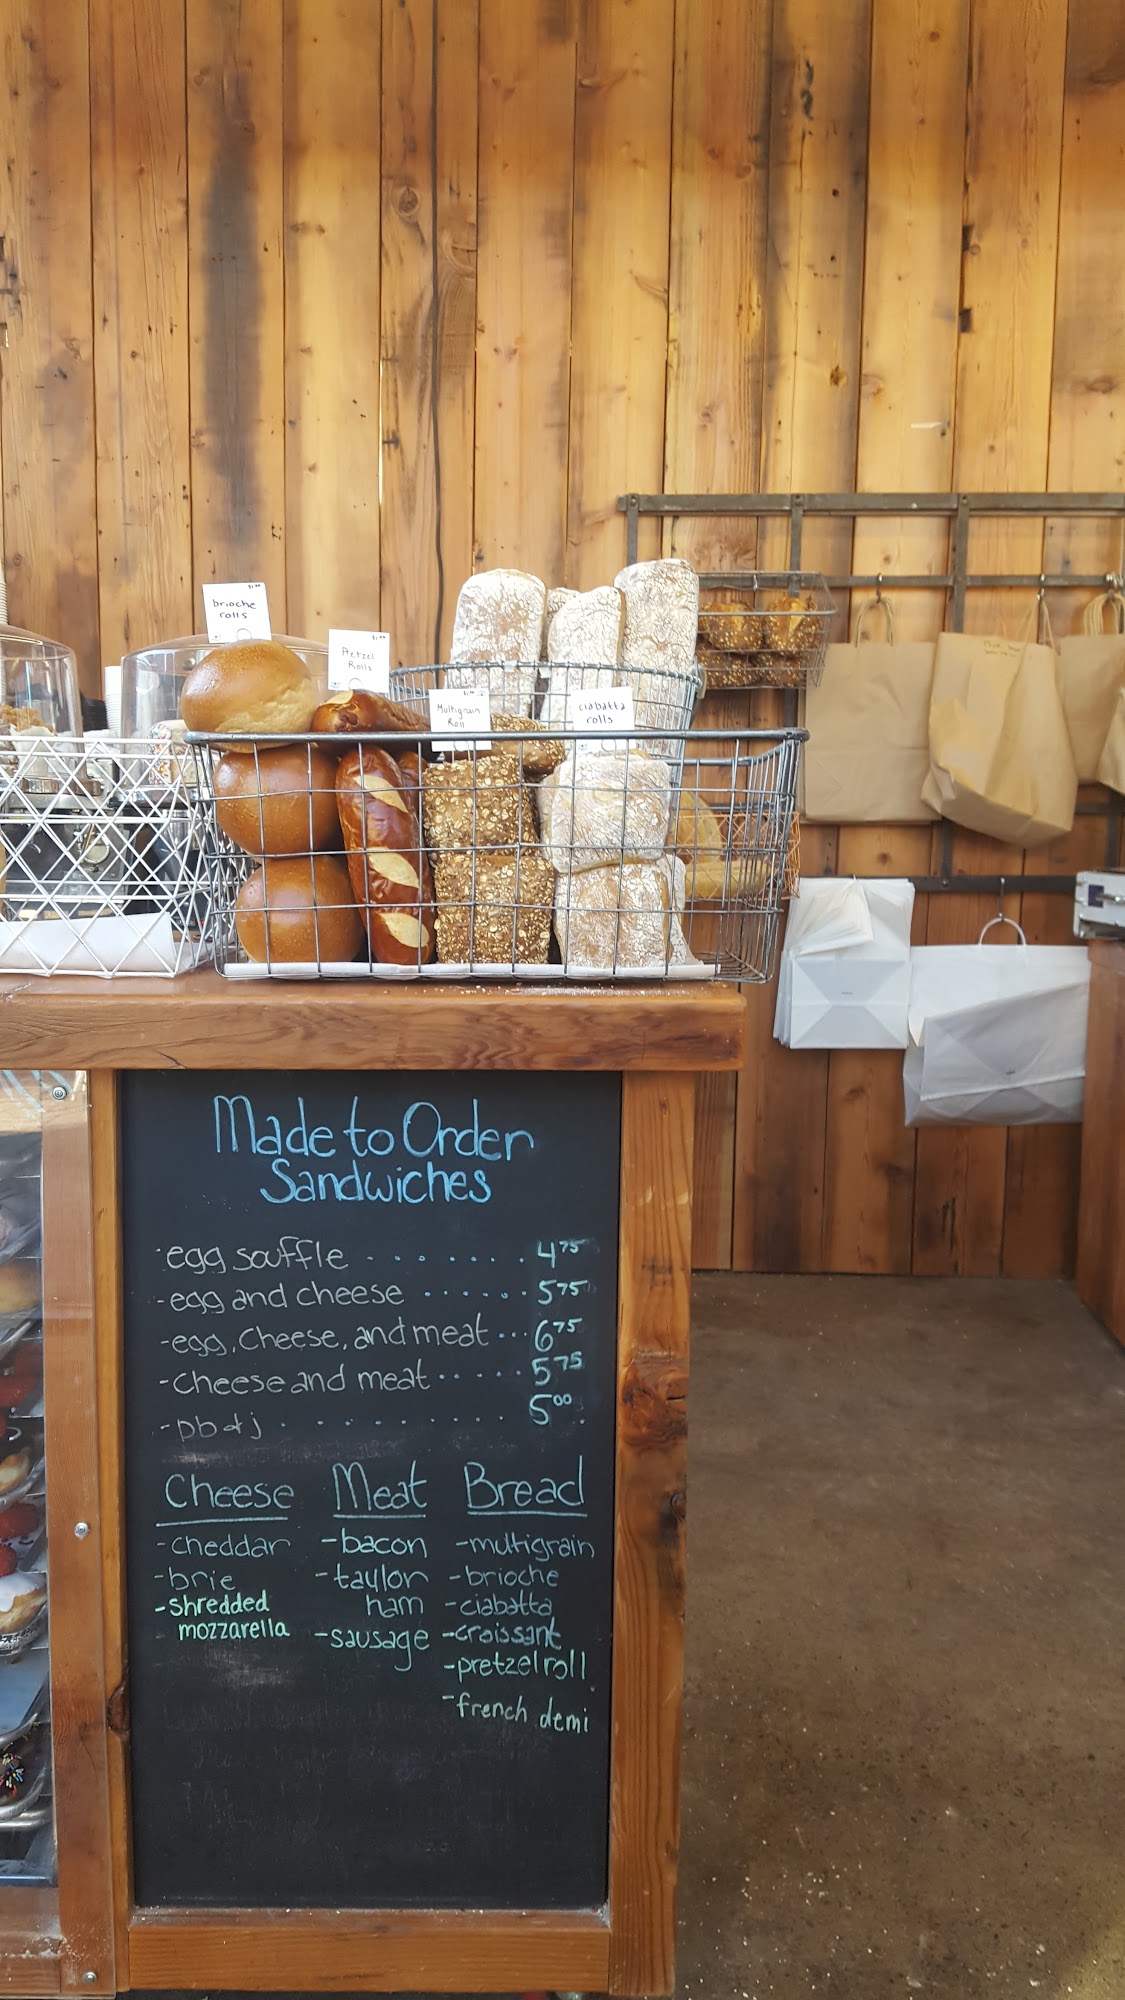 brioche
rolls
Pretzel
Rolls
Multigrain
Roll
ciabatta
rolls
Made to Order
Sandwiches
-egg souffle . . . . . . . 4 75
-egg and cheese ...... 5 75
-egg, cheese, and meat ... 6 75
-cheese and meat ..... 5 75
-pb & j . . . . . . . . . 5 00
Cheese
-cheddar
-brie
-shredded
mozzarella
Meat
-bacon
-taylor
ham
-sausage
Bread
-multigrain
-brioche
-ciabatta
-croissant
-pretzel roll
-french demi